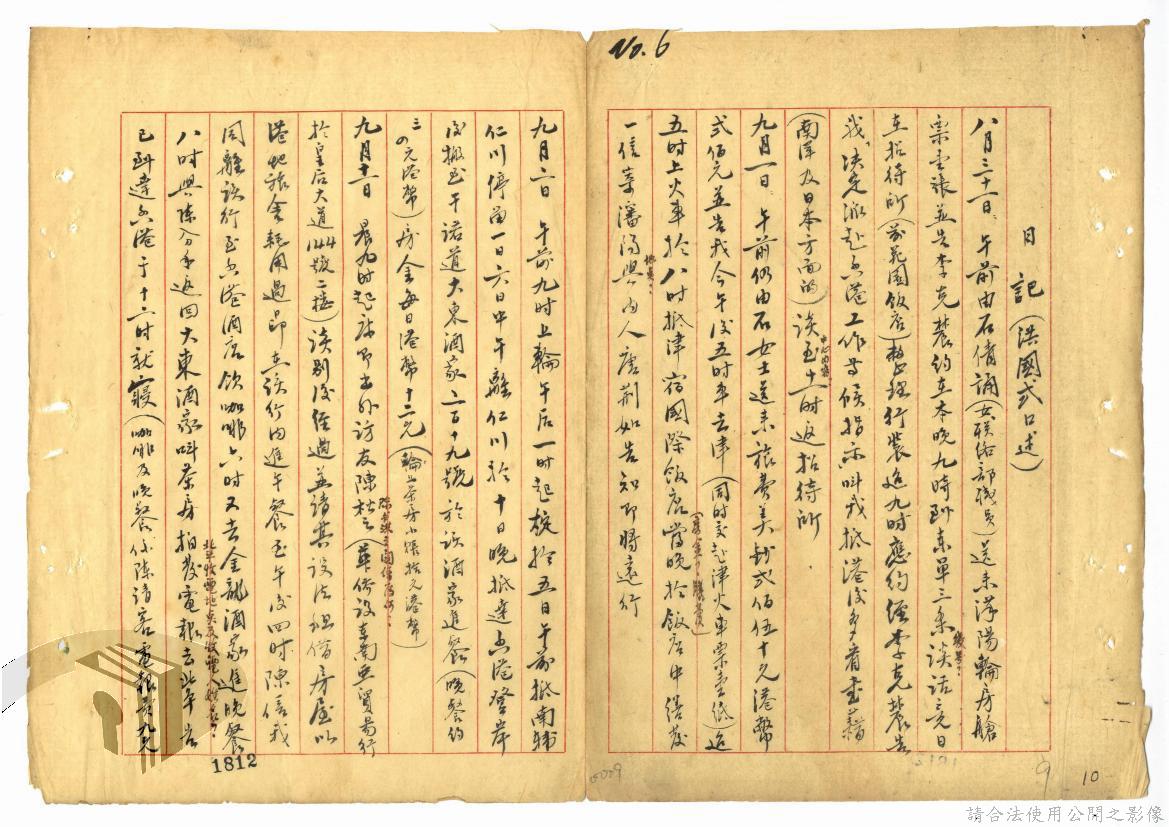 No. 6
日記(洪國式口述)
八月三十一日、午前由石倩誦(女联络部職員)送来萍陽輪房艙
票壹張並告李克農約在本晚九時到東單三条談話竟日
幾号?
在招待所(前花園飯店)整理行装迨九时應約偕李克農告
我,决定派赴香港工作等候指示叫我抵港後多看書藉
(南洋及日本方面的)談至十一时返招待所
中心內容?
九月一日、午前仍由石女士送来旅費美鈔弍佰伍十元港幣
弍佰元並告我今午後五时車去津(同时交赴津火車票壹紙)迨
五时上火車於八时抵津宿國際飯店當晚於飯店中繕發
一信寄瀋陽與內人唐荊如告知即將遠行
地号?
九月二日、午前九时上輪午后一时起椗於五日午前抵南韓
仁川停留一日六日中午離仁川於十日晚抵達香港登岸
後搬至干諾道大東酒家二百十九號於該酒家進餐(晚餐約
三四元港幣)房金每日港幣十二元(輪上茶房小賬拾元港幣)
九月十一日 晨九时起床早出外訪友陳
於皇后大道144號二樓)談別後經過並請其設法租借房屋以
港蚍旅舍耗用過昂在該行內進午餐至午後四时陳偕我
同離該行至香港酒店飲咖啡六时又去金龍酒家進晚餐
八时與陳分手返回大東酒家叫茶房拍發電報去北平告
北平收電地点及收電人姓名?
已到達香港于十一时就寢(咖啡及晚餐係陳請客電報費九元
1812
10
請合法使用公開之影像